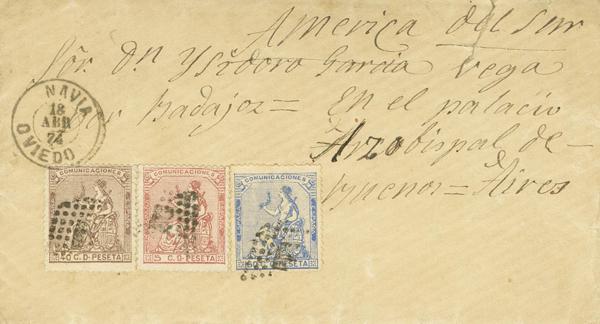 America del Sur
Sór. Dn. Ysidoro Garcia Vega
por Badajoz = En el palacio
Arzobispal de -
Buenos = Aires
NAVIA
18
ABR
74
OVIEDO
COMUNICACIONES
40 C. D. PESETA
COMUNICACIONES
5 C. D. PESETA
COMUNICACIONES
C. PESETA